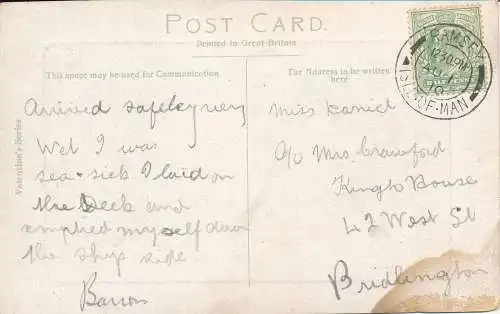 POST CARD.
Printed in Great Britain
This space may be used for Communication
The Address to be written here
Valentine's Series
RAMSEY
12.30PM
ISLE-OF-MAN
Arrived safeley very
Wet I was
sea-sick I laid on
the Deck and
emptied myself down
the ship side
Barron
Miss
c/o Mrs. Crawford
House
42 West St
Bridlington